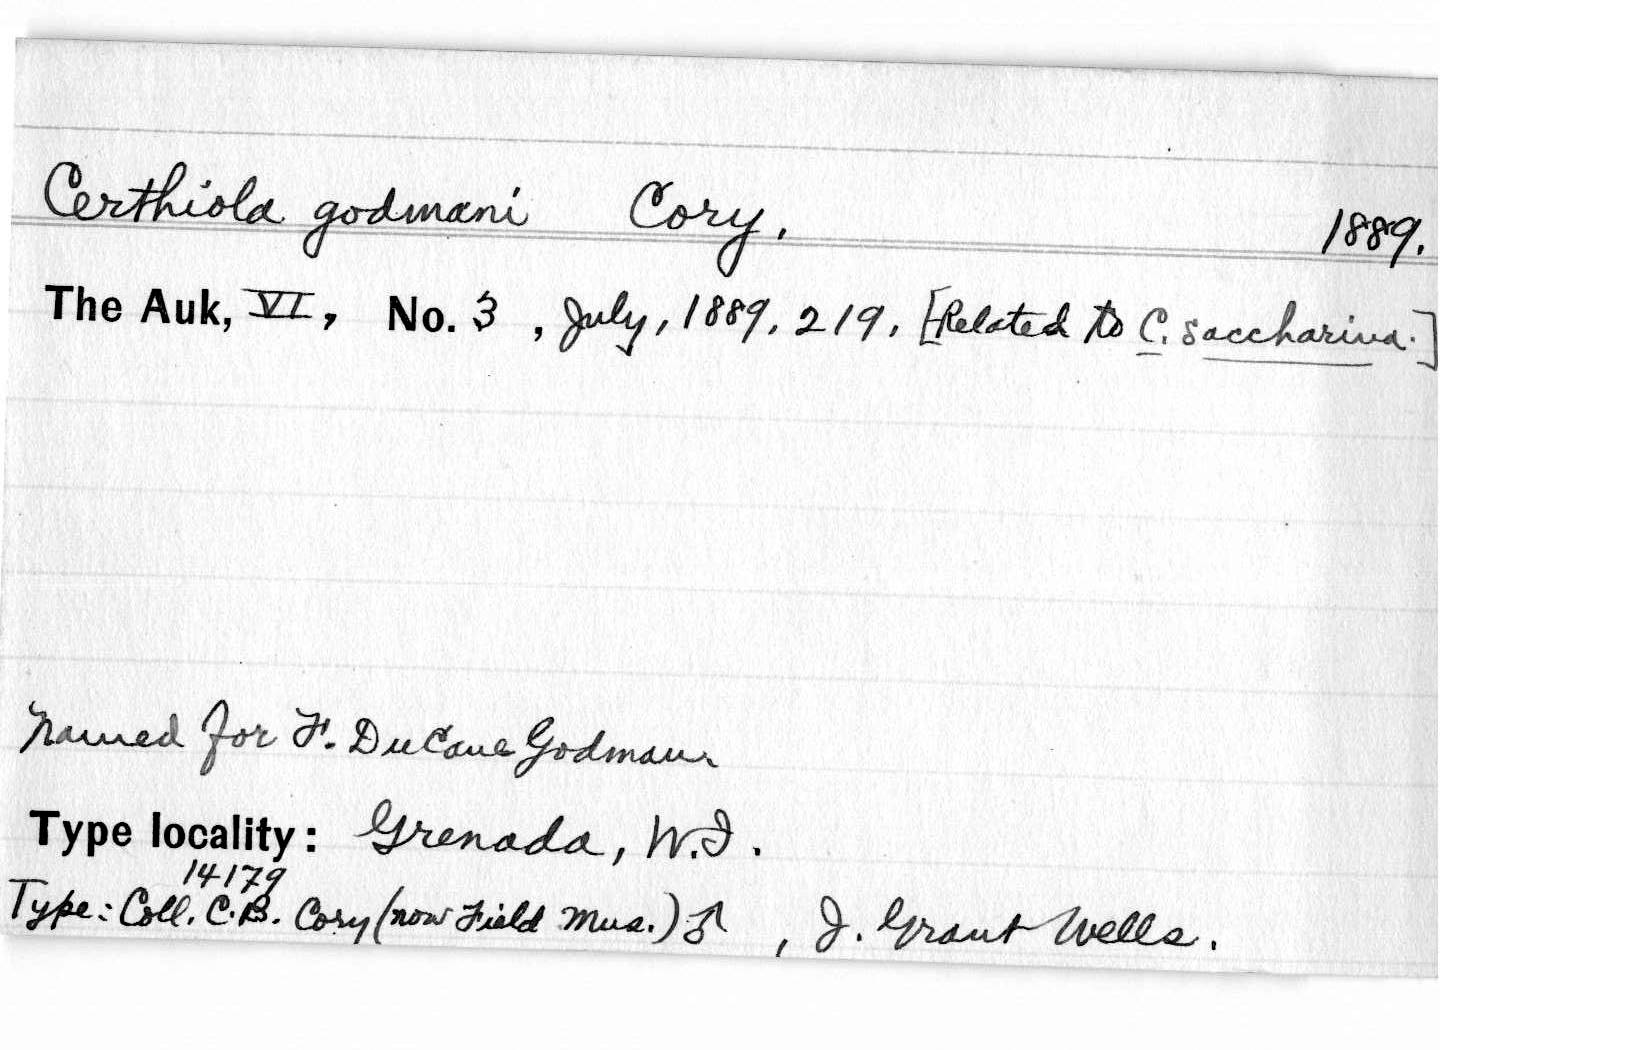 Certhiola godmani Cory. 1889.
The Auk, VI, No. 3, July, 1889, 219. [Related to C. saccharina.]
Named for F. DuCane Godman
Type locality: Grenada, W.I.
14179
Type: Coll. C.B. Cory (now Field Mus.) ♂, J. Grant Wells.